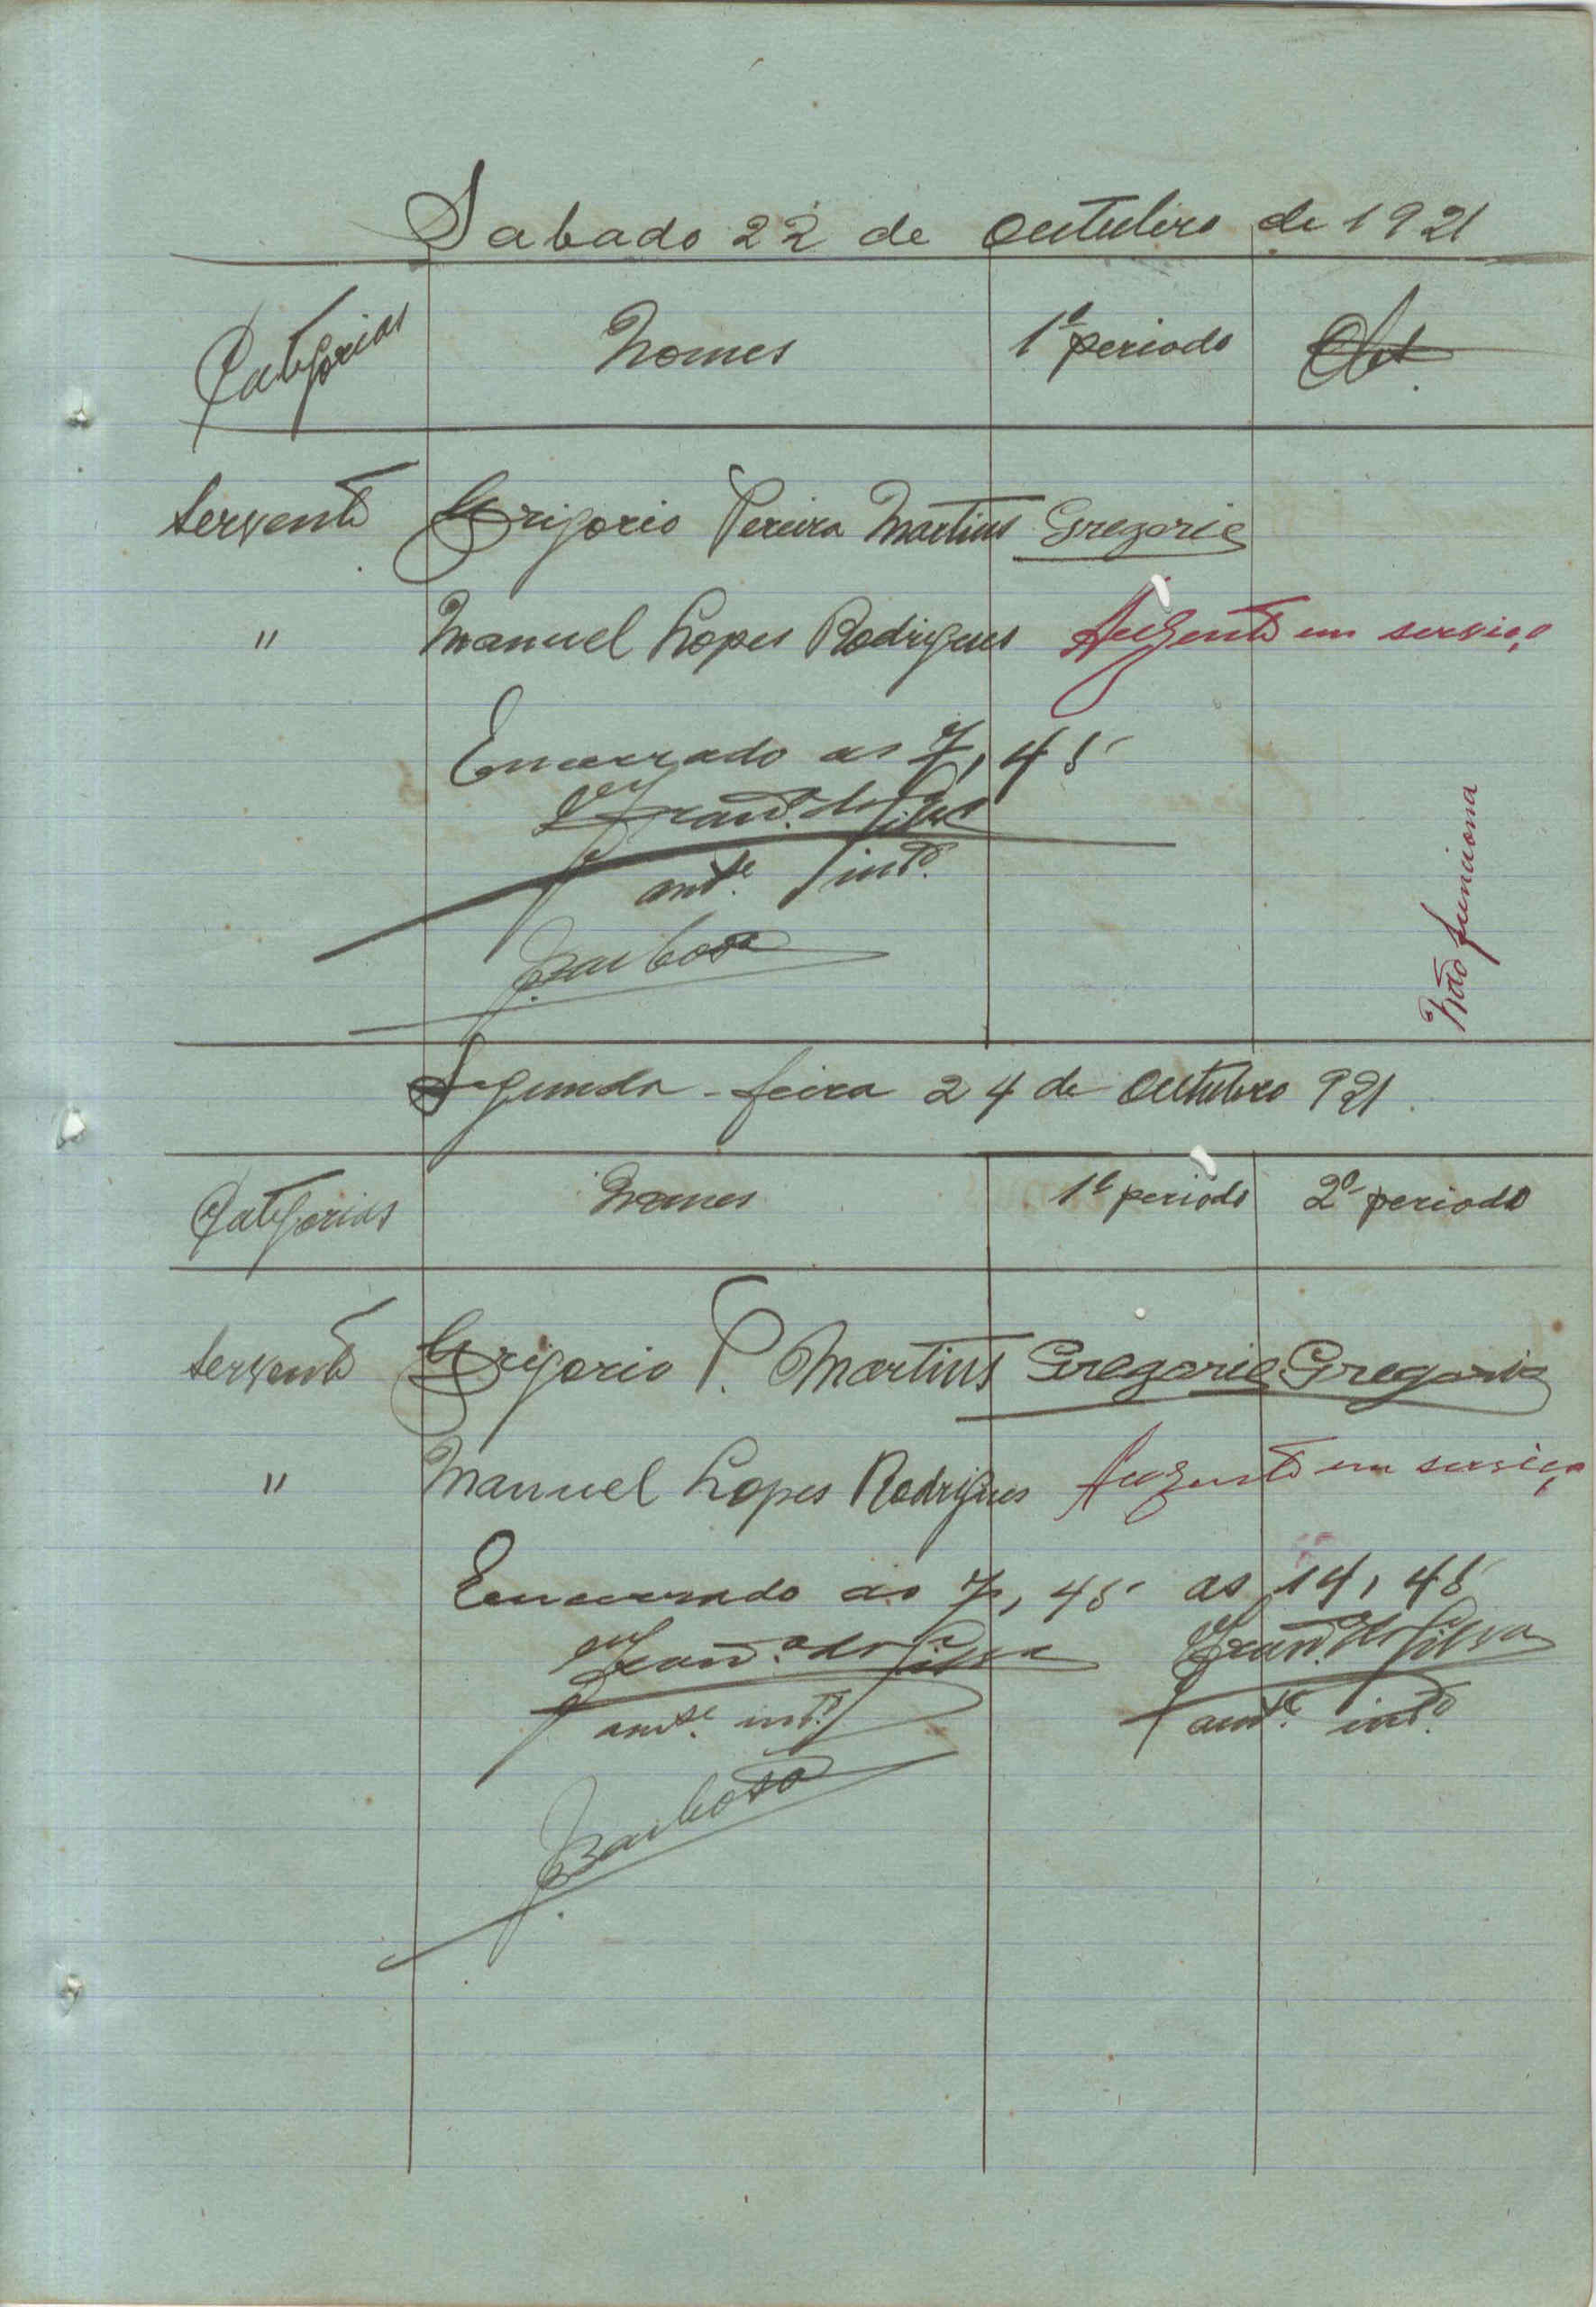 Sabado 22 de Outubro de 1921
Categorias Nomes 1º periodo Obs.
Servente Grigorio Pereira Martins Gregorio
" Manuel Lopes Rodrigues Auzente em serviço
Encerrado as 7,45
Franco. da Silva
amse. into.
Barbosa
Não funciona
Segunda-feira 24 de Outubro 921
Categorias Nomes 1º periodo 2º periodo
Servente Grigorio P. Martins Gregorio Gregorio
" Manuel Lopes Rodrigues Auzente em serviço
Encerrado as 7,45 as 14,45
Franco. da Silva Franco. da Silva
amse. into. amse. into.
Barbosa